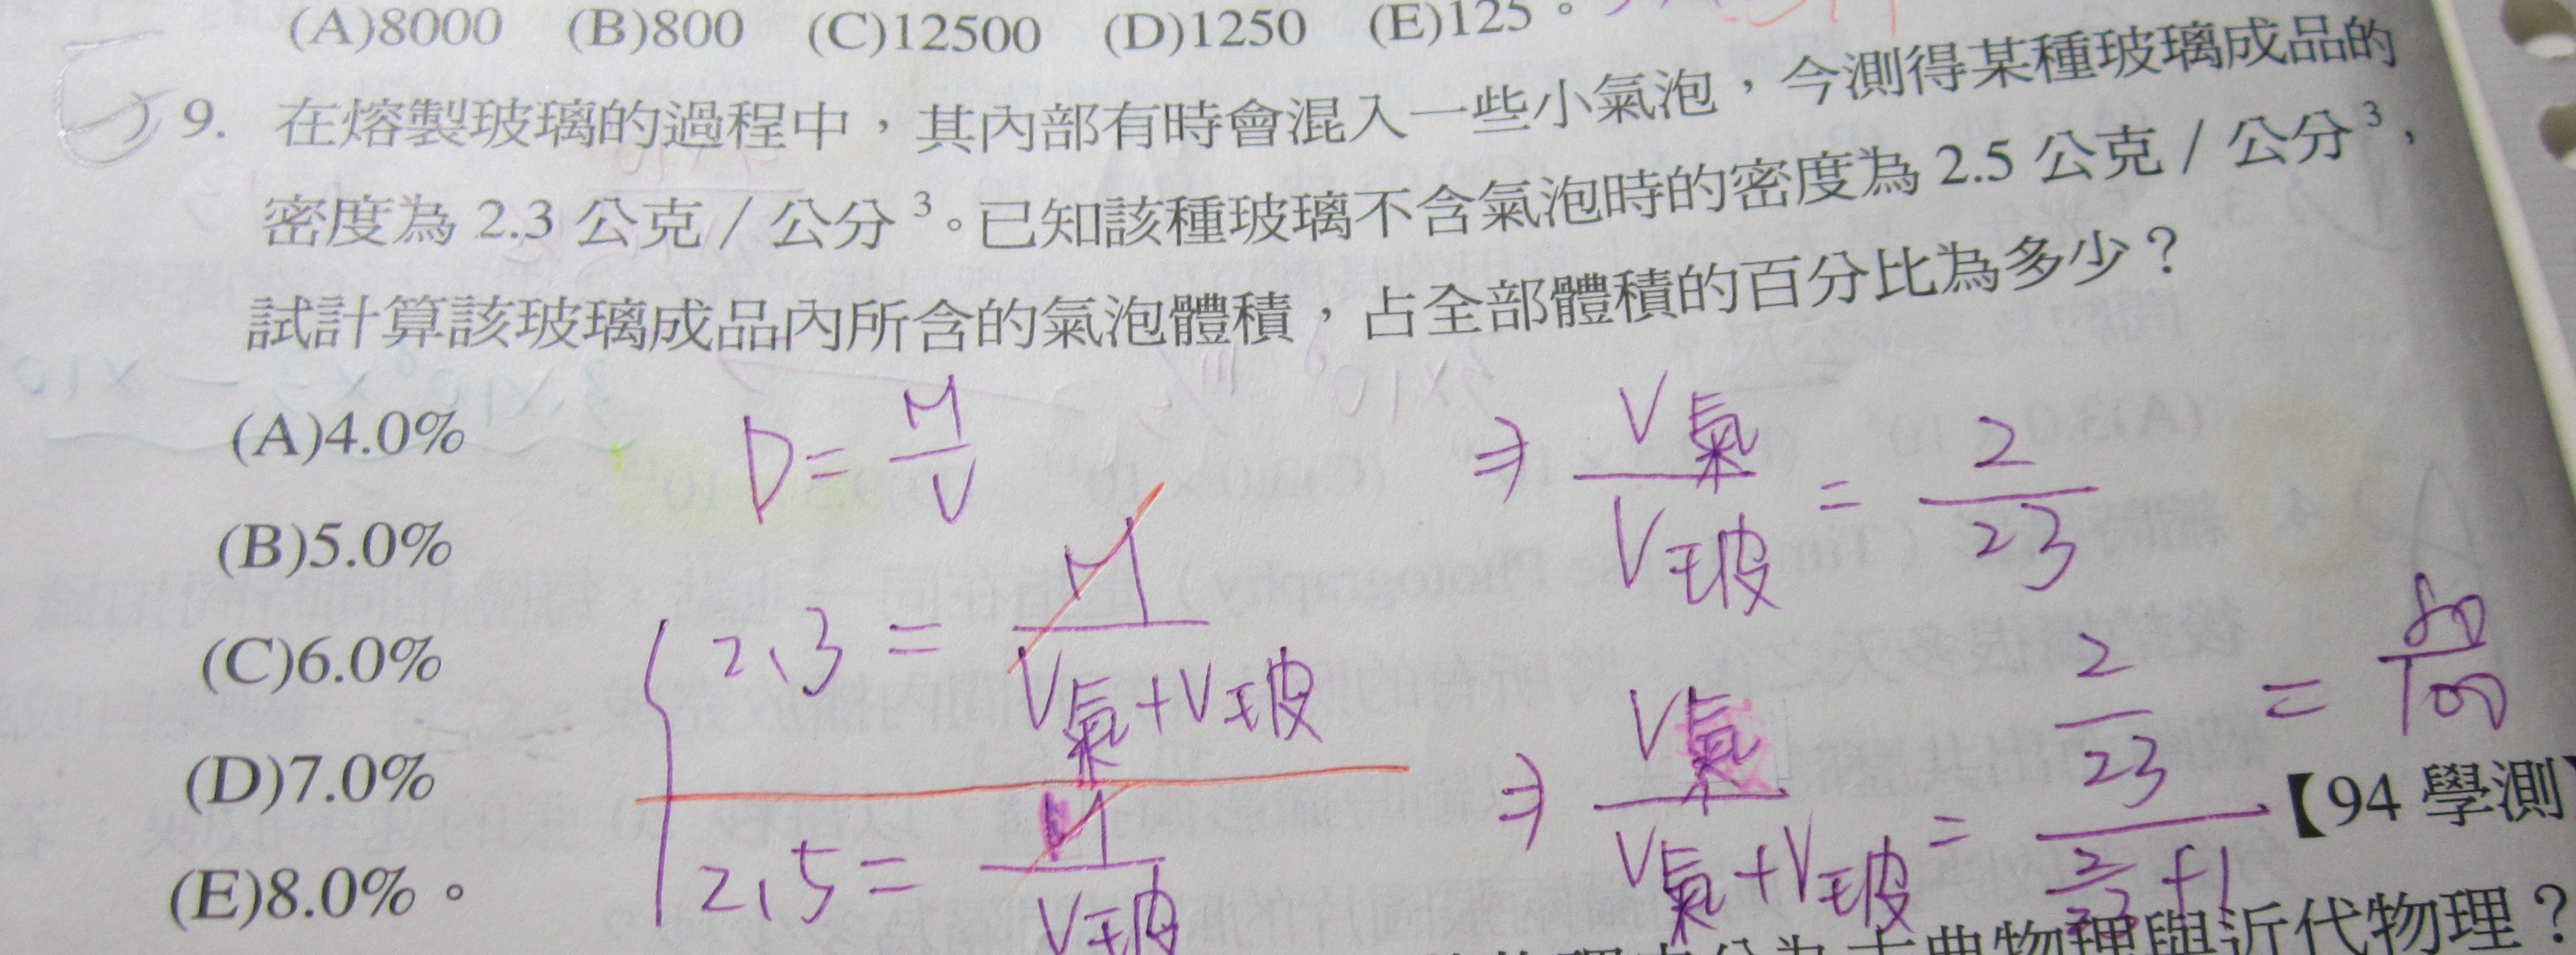 (A)8000 (B)800 (C)12500 (D)1250 (E)125。
9. 在熔製玻璃的過程中，其內部有時會混入一些小氣泡，今測得某種玻璃成品的
密度為 2.3 公克 / 公分³。已知該種玻璃不含氣泡時的密度為 2.5 公克 / 公分³，
試計算該玻璃成品內所含的氣泡體積，占全部體積的百分比為多少？
(A)4.0%
(B)5.0%
(C)6.0%
(D)7.0%
(E)8.0%。
D = M/V
2.3 = M/(V氣+V玻)
2.5 = M/V玻
⇒ V氣/V玻 = 2/23
⇒ V氣/(V氣+V玻) = (2/23)/(2/23 +1)
【94 學測】
古典物理與近代物理？